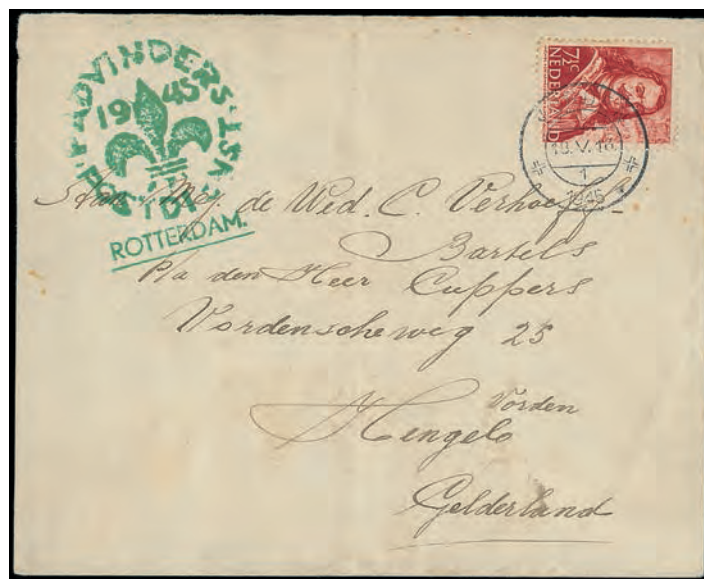 PADVINDERS
19 45
POSTDIENST
ROTTERDAM.
7½c
NEDERLAND
18.V.18
1
1945
Aan Mej. de Wed. C. Verhoeff
Bartels
p/a den Heer Cuppers
Vordenscheweg 25
Vorden
Hengelo
Gelderland